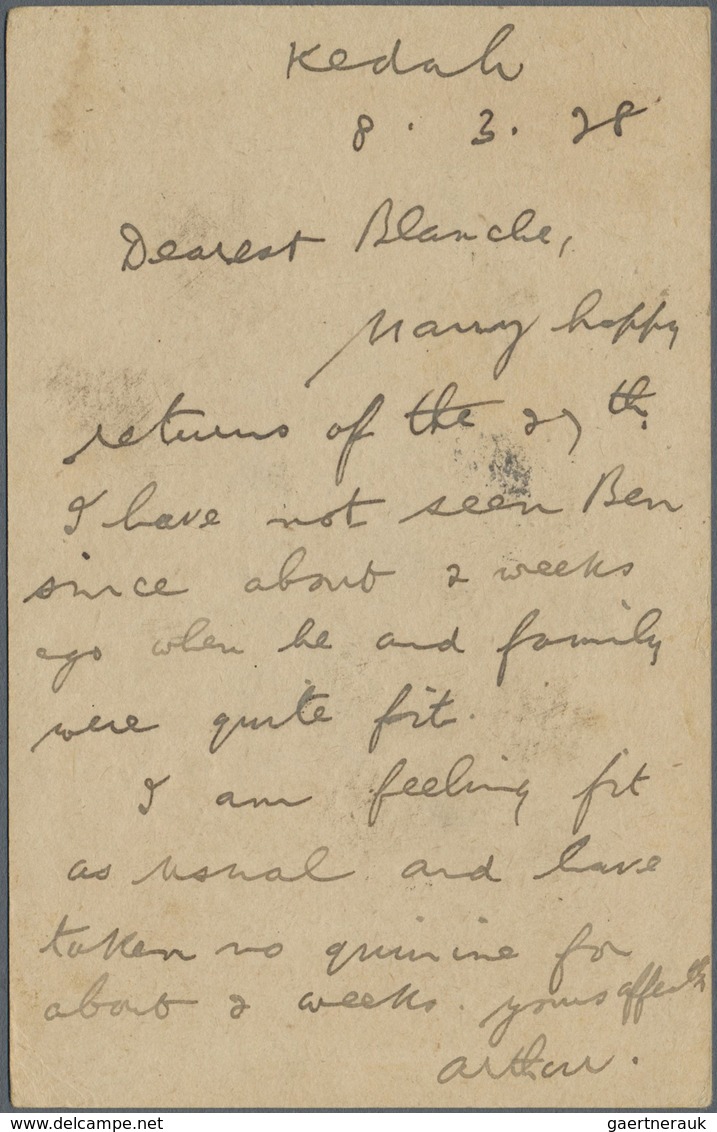 Kedah
8. 3. 28
Dearest Blanche,
Many happy
returns of the 27th.
I have not seen Ben
since about 2 weeks
ago when he and family
were quite fit.
I am feeling fit
as usual and have
taken no quinine for
about 2 weeks. yours affectly
Arthur.
www.delcampe.net
gaertnerauk